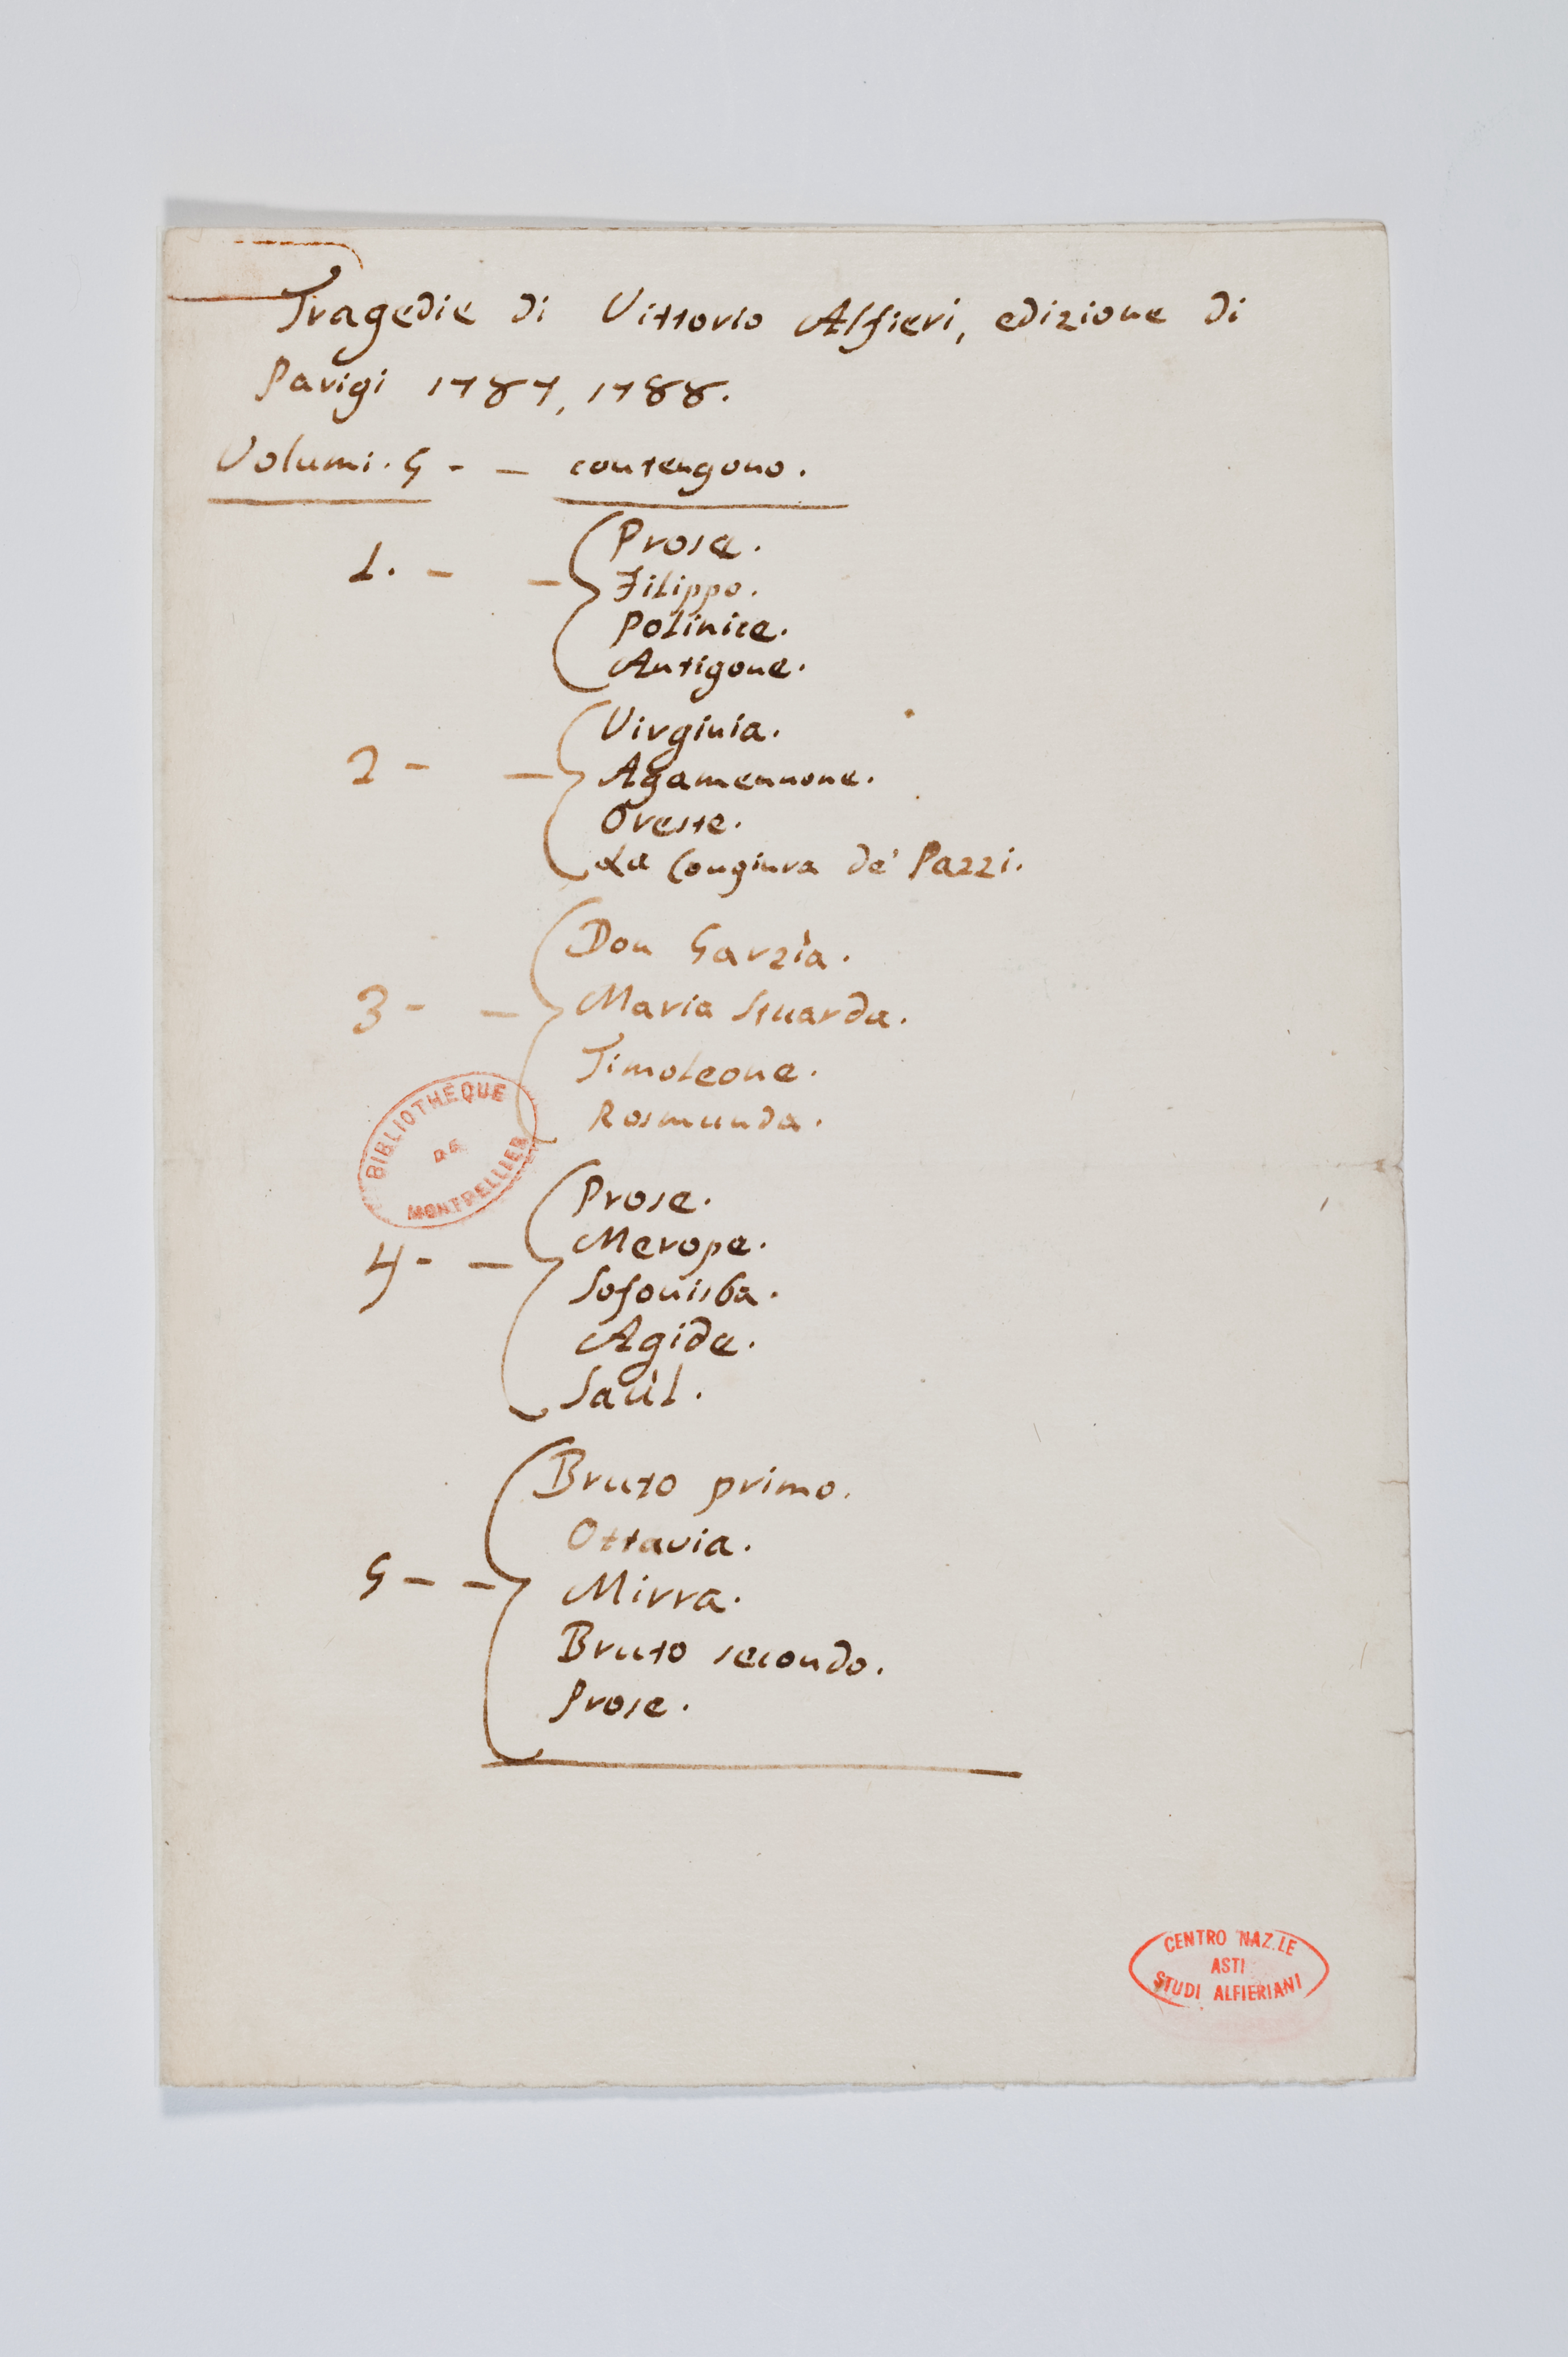 Tragedie di Vittorio Alfieri, edizione di
Parigi 1787, 1788.
Volumi. 5 - - contengono.
1. - - Prose.
Filippo.
Polinice.
Antigone.
2 - - Virginia.
Agamennone.
Oreste.
La Congiura de' Pazzi.
3 - - Don Garzìa.
Maria Stuarda.
Timoleone.
Rosmunda.
BIBLIOTHÈQUE
DE
MONTPELLIER
4 - - Prose.
Merope.
Sofonisba.
Agide.
Saùl.
5 - - Bruto primo.
Ottavia.
Mirra.
Bruto secondo.
Prose.
CENTRO NAZ.LE
ASTI
STUDI ALFIERIANI